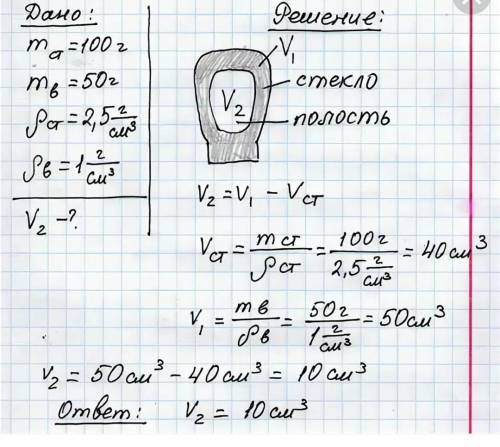 Дано:
mа = 100г
mв = 50г
ρст = 2,5 г/см³
ρв = 1 г/см³
V₂ - ?
Решение:
V₁
стекло
V₂
полость
V₂ = V₁ - Vст
Vст = mст/ρст = 100г/2,5 г/см³ = 40см³
V₁ = mв/ρв = 50г/1 г/см³ = 50см³
V₂ = 50см³ - 40см³ = 10см³
Ответ: V₂ = 10см³